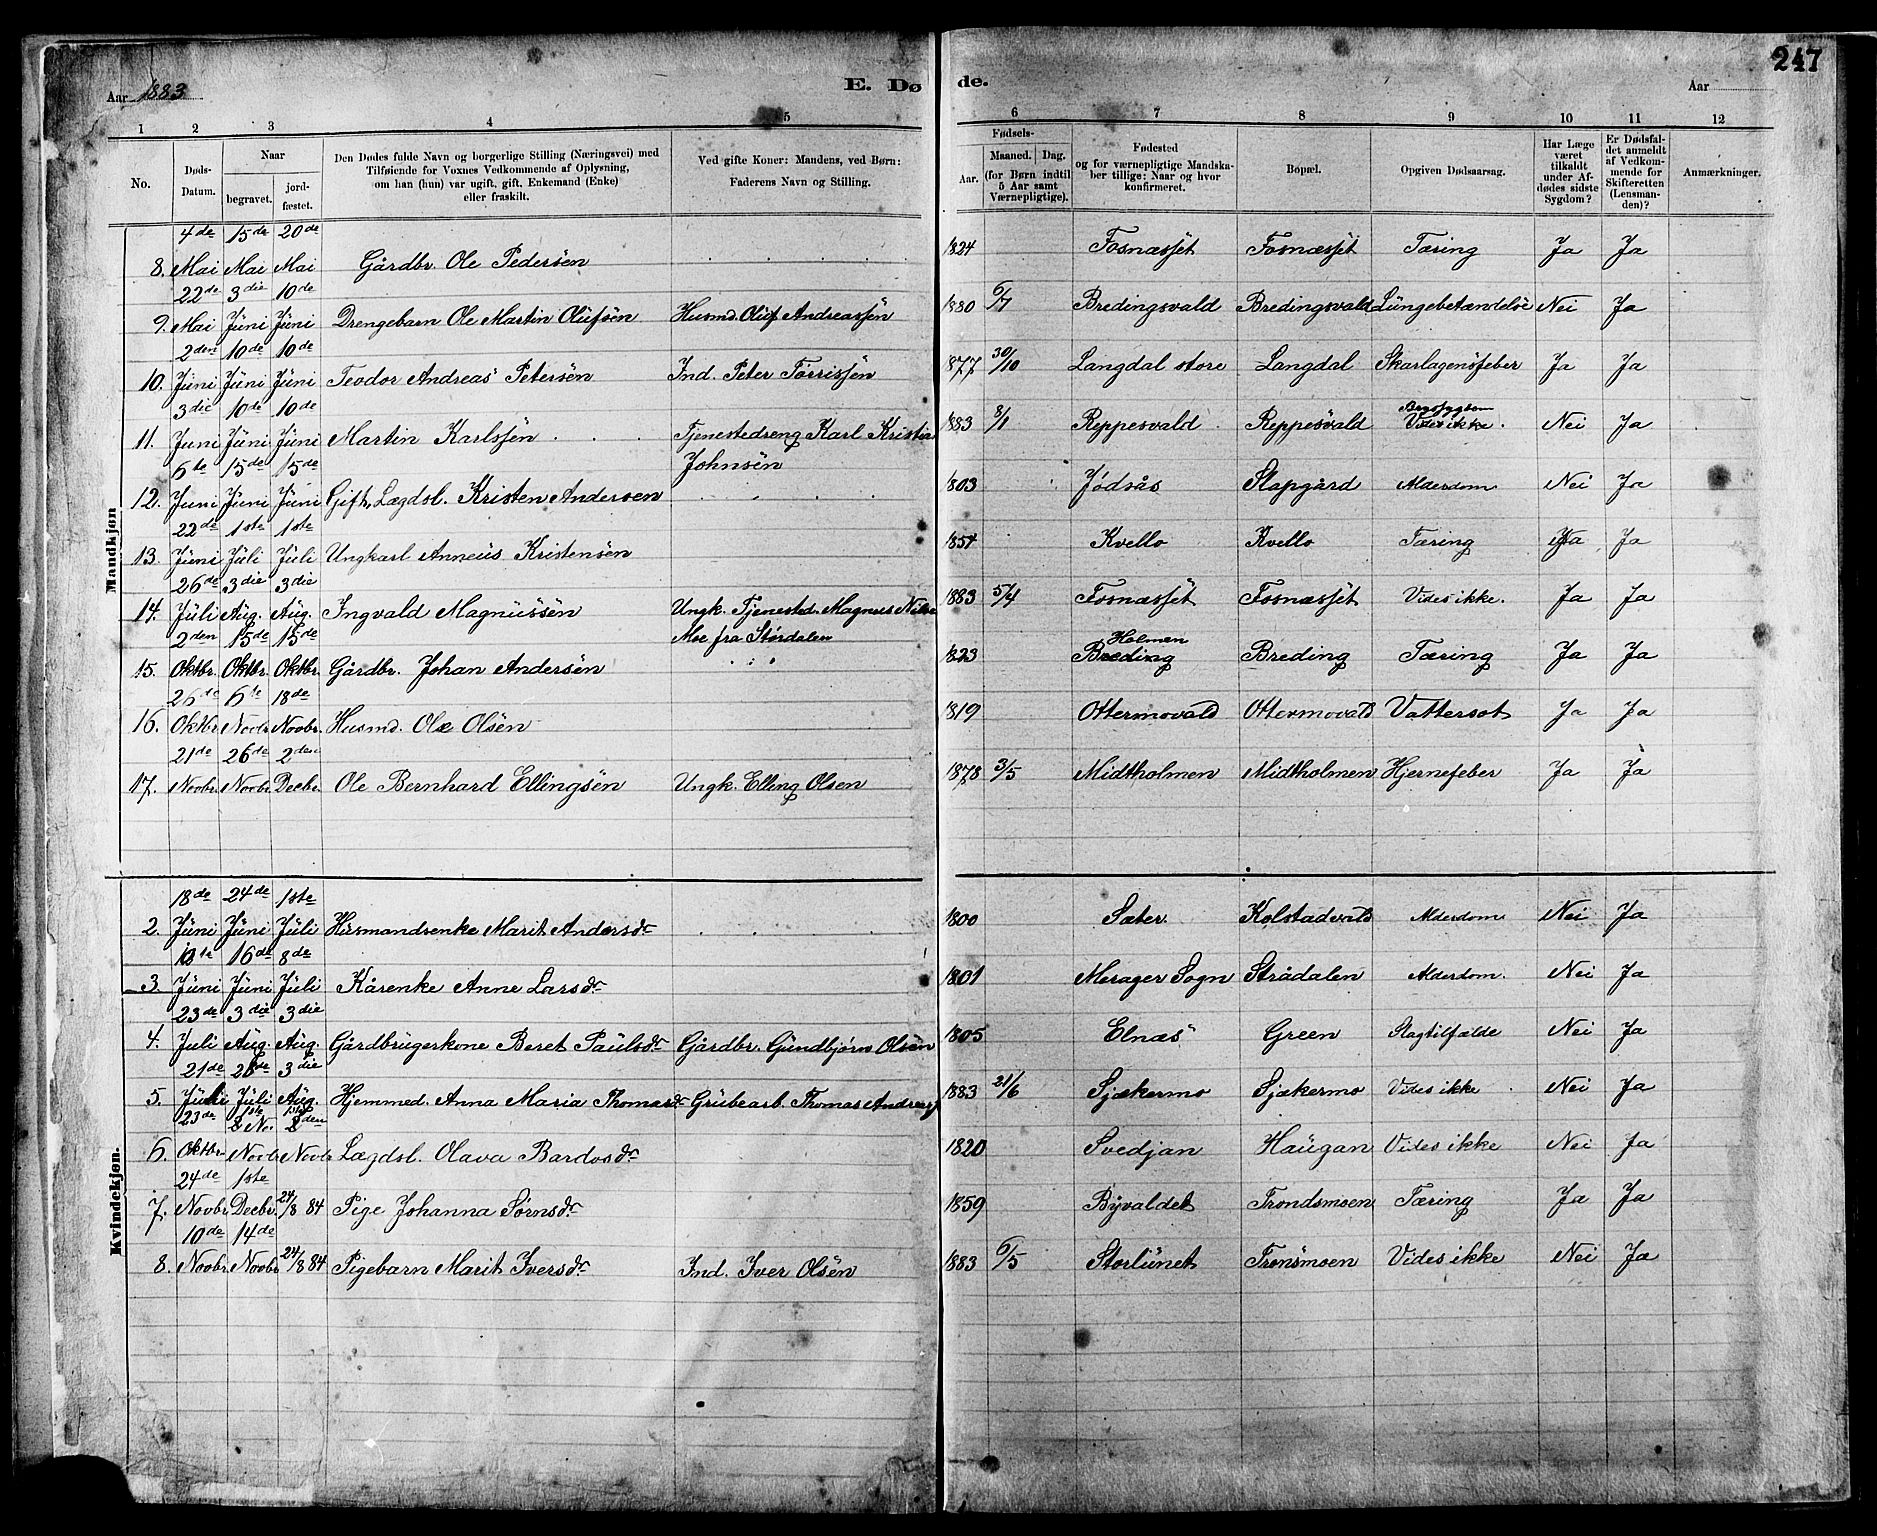 247
Aar 1883 E. Dø de. Aar
1 2 3 4 5 6 7 8 9 10 11 12
No. Døds-Datum. Naar begravet. jord-fæstet. Den Dødes fulde Navn og borgerlige Stilling (Næringsvei) med Tilføiende for Voxnes Vedkommende af Oplysning, om han (hun) var ugift, gift, Enkemand (Enke) eller fraskilt. Ved gifte Koner: Mandens, ved Børn: Faderens Navn og Stilling. Fødsels- Aar. Maaned. Dag. (for Børn indtil 5 Aar samt Værnepligtige). Fødested og for værnepligtige Mandskaber tillige: Naar og hvor konfirmeret. Bopæl. Opgiven Dødsaarsag. Har Læge været tilkaldt under Afdødes sidste Sygdom? Er Dødsfaldet anmeldt af Vedkommende for Skifteretten (Lensmanden)? Anmærkninger.
Mandkjøn
8. 4de Mai 15de Mai 20de Mai Gårdbr. Ole Pedersen 1824 Fosnæsset Fosnæsset Tæring Ja Ja
9. 22de Mai 3die Juni 10de Juni Drengebarn Ole Martin Olufsen Husmd. Oluf Andreassen 1880 6/7 Bredingsvald Bredingsvald Lungebetændelse Nei Ja
10. 2den Juni 10de Juni 10de Juni Teodor Andreas Petersen Ind. Peter Torrissen 1877 30/10 Langdal store Langdal Skarlagensfeber Ja Ja
11. 3die Juni 10de Juni 10de Juni Martin Karlssen Tjenestedreng Karl Kristian Johnsen 1883 8/1 Reppesvald Reppesvald Vides ikke. Nei Ja
12. 6te Juni 15de Juni 15de Juni Gift, Lægdsl. Kristen Andersen 1803 Jødsås Slapgård Alderdom Nei Ja
13. 22de Juni 1ste Juli 1ste Juli Ungkarl Anneus Kristensen 1854 Kvello Kvello Tæring Ja Ja
14. 26de Juli 3die Aug. 3die Aug. Ingvald Magnussen Ungk. Tjenested. Magnus Moe fra Størdalen 1883 5/4 Fosnæsset Fosnæsset Vides ikke. Ja Ja
15. 2den Oktbr. 15de Oktbr. 15de Oktbr. Gårdbr. Johan Andersen 1823 Holmen Breding Breding Tæring Ja Ja
16. 26de Oktbr. 6te Novbr. 18de Novbr. Husmd. Ole Olsen 1819 Ottermovald Ottermovald Vattersot Ja Ja
17. 21de Novbr. 26de Novbr. 2den Decbr. Ole Bernhard Ellingsen Ungk. Elling Olsen 1878 3/5 Midtholmen Midtholmen Hjernefeber Ja Ja
Kvindekjøn.
2. 18de Juni 24de Juni 1ste Juli Husmandsenke Marit Andersdr. 1800 Sæter Kolstadvald Alderdom Nei Ja
3. Juni 16de Juni 8de Juli Kårenke Anne Larsdr. 1801 Merager Sogn Strådalen Alderdom. Nei Ja
4. 23de Juli 3die Aug. 3die Aug. Gårdbrugerkone Beret Paulsdr. Gårdbr. Gundbjørn Olsen 1805 Elnæs Green Slagtilfælde Nei Ja
5. 21de 28de Juli 3die Aug. Hjemmed. Anna Maria Thomasdr. Grubearb. Thomas 1883 21/6 Sjækermo Sjækermo Vides ikke Nei Ja
6. 23de Oktbr. Novbr. Novbr. Lægdsl. Olava Bardosdr. 1820 Svedjan Haugan Vides ikke Nei Ja
7. 24de Novbr. 1ste Decbr. 24/8 84 Pige Johanna Sørnsdr. 1859 Byvaldet Trondsmoen Tæring Ja Ja
8. 10de Novbr. 14de Novbr. 24/8 84 Pigebarn Marit Iversdr. Ind. Iver Olsen 1883 6/5 Storlunet Tronsmoen Vides ikke Nei Ja